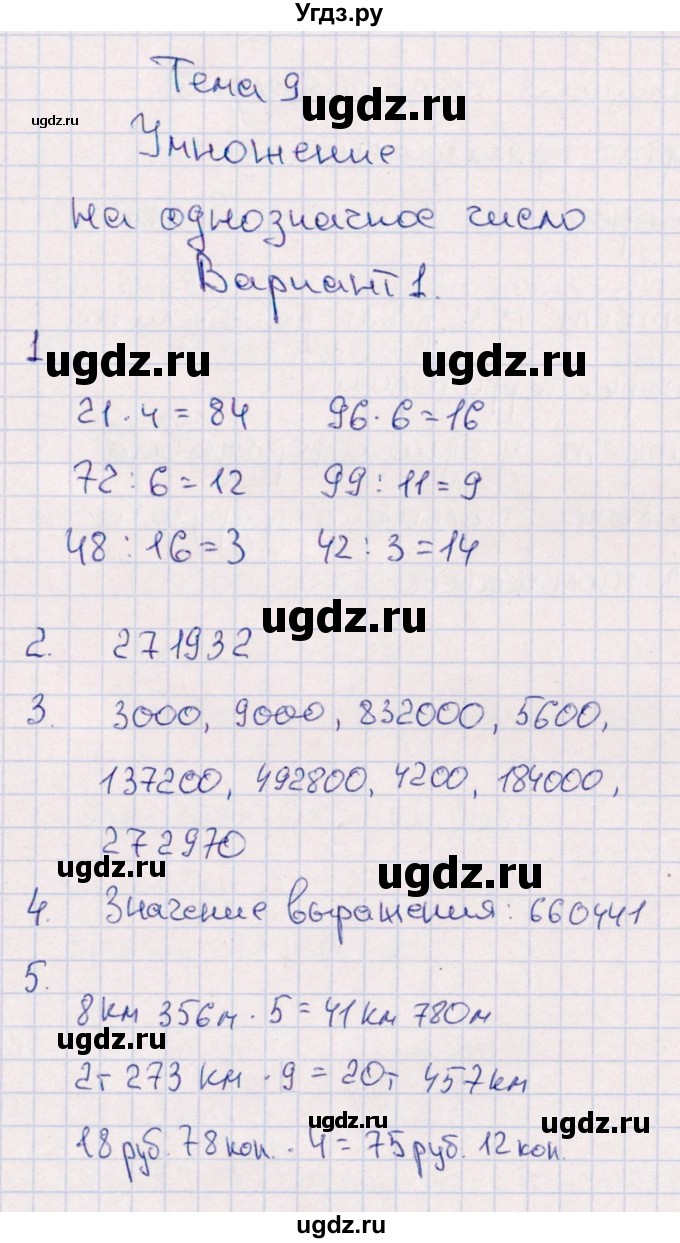 Угдз.ру
Тема 9
ugdz.ru
ugdz.ru
Умножение
на однозначное число
Вариант 1.
1
ugdz.ru ugdz.ru
21 · 4 = 84 96 · 6 = 16
72 : 6 = 12 99 : 11 = 9
48 : 16 = 3 42 : 3 = 14
ugdz.ru
2. 271932
3. 3000, 9000, 832000, 5600,
137200, 492800, 4200, 184000,
272970
ugdz.ru ugdz.ru
4. Значение выражения: 660441
5.
8 км 356 м · 5 = 41 км 780 м
ugdz.ru ugdz.ru
2т 273 км · 9 = 20т 457 км
ugdz.ru ugdz.ru
18 руб. 78 коп. · 4 = 75 руб. 12 коп.
ugdz.ru